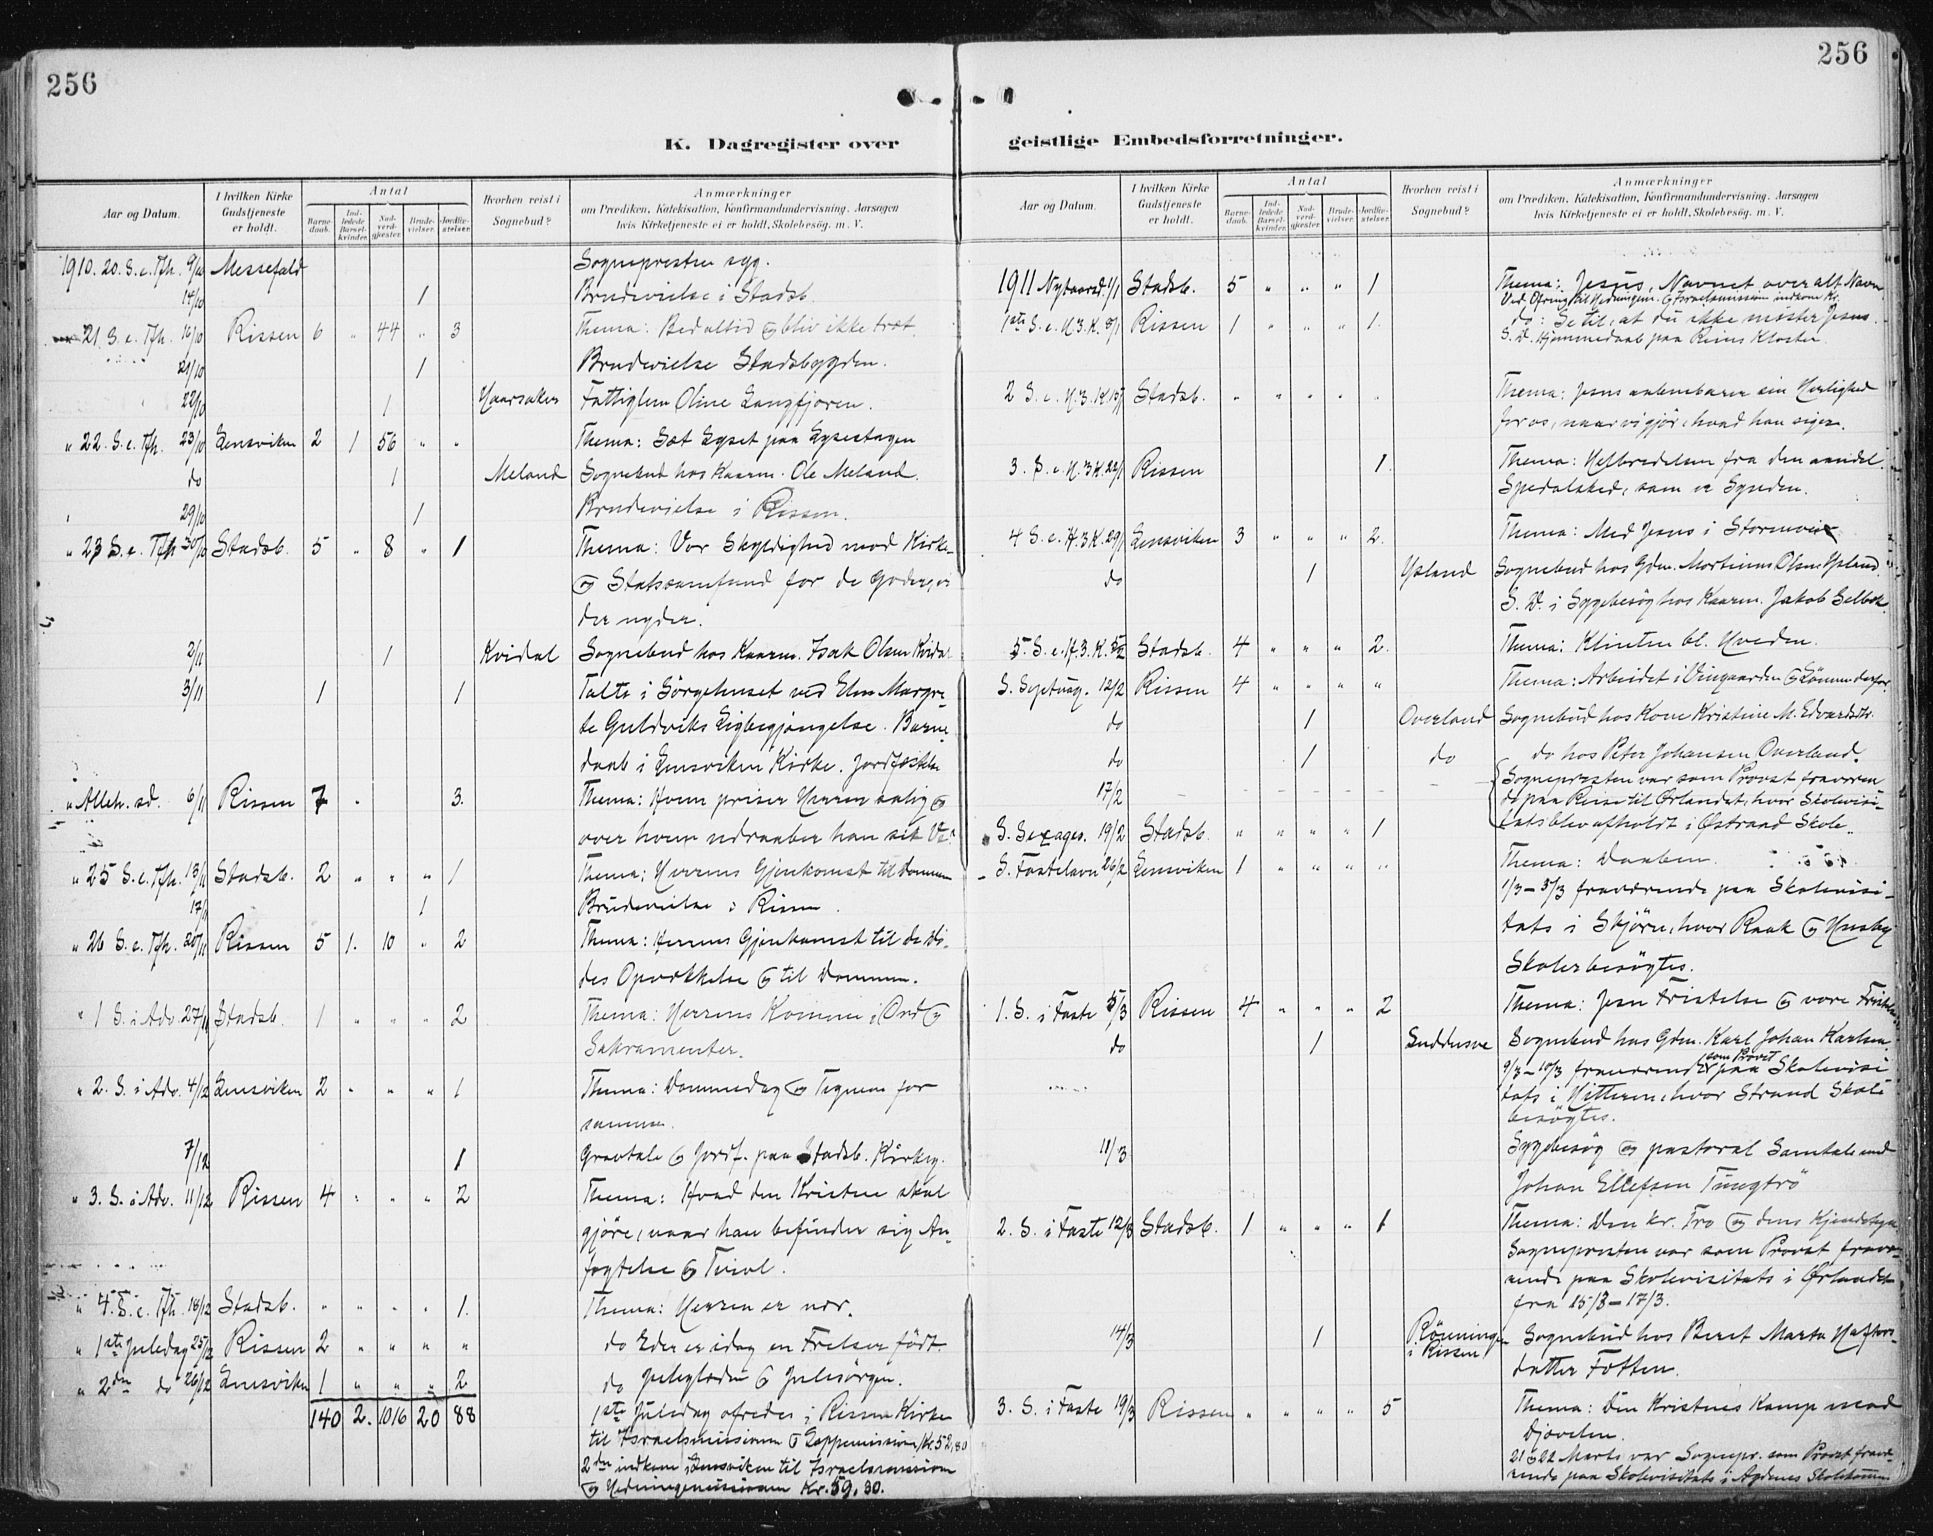 256
256
K. Dagregister over
geistlige Embedsforretninger.
Aar og Datum.
I hvilken Kirke Gudstjeneste er holdt.
Antal
Barnedaab.
Indledede Barselkvinder.
Nadverdgjester.
Brudevielser.
Jordfæstelser.
Hvorhen reist i Sognebud?
Anmærkninger
om Prædiken, Katekisation, Konfirmandundervisning. Aarsagen
hvis Kirketjeneste ei er holdt, Skolebesøg. m. V.
1910. 20. S. e. Tfh. 9/10 Messefald Sognepresten syg.
14/10 1 Brudevielse i Stadsb.
21 S. e. Tfh. 16/10 Rissen 6 " 44 " 3 Thema: Bed altid og bliv ikke træt.
21/10 1 Brudevielse Stadsbygden.
22/10 1 Fattiglem Oline
" 22. S. e. Tfh. 23/10 Lensviken 2 1 56 " " Thema: Sæt Lyset paa Lysestagen
do 1 Meland Sognebud hos Kaarm. Ole Meland.
" 29/10 1 Brudevielse i Rissen.
" 23 S. e. Tfh 30/10 Stadsb. 5 " 8 " 1 Thema: Vor Skyldighed mod Kirke-
og Statssamfund for de Goder, vi
der nyder.
2/11 1 Kvidal Sognebud hos Kaarm. Isak Olsen Kvidal
3/11 1 1 Talte i Sörgehuset ved Elen Margre-
te Guldviks Ligbegjængelse. Barne-
daab i Lensviken Kirke. Jordfæstelse
" Alleh. sd. 6/11 Rissen 7 " 3. Thema: Hvem priser Herren salig og
over hvem udraaber han sit Ve?
" 25 S. e. Tfh. 13/11 Stadsb. 2 " " " 1 Thema: Herrens Gjenkomst til Dommen
17/11 1 Brudevielse i Rissen.
" 26 S. e. Tfh. 20/11 Rissen 5 1. 10 " 2 Thema: Herrens Gjenkomst til de Dö-
des Opvækkelse og til Dommen.
" 1 S. i Adv. 27/11 Stadsb. 1 " " " 2 Thema: Herrens Komme i Ord og
Sakramenter.
" 2. S. i Adv. 4/12 Lensviken 2 " " " 1 Thema: Dommedag og Tegnene for
samme.
7/12 1 Gravtale og Jordf. paa Stadsb. Kirkeg.
" 3. S. i Adv. 11/12 Rissen 4 " " " 2 Thema: Hvad den Kristne skal
gjöre, naar han befinder sig An-
fægtelse og Tvivl.
" 4. S. e. Tfh. 18/12 Stadsb. " " " " 1. Thema: Herren er nær.
" 1ste Juledag 25/12 Rissen 2 " " " " do Eder er idag en Frelser født.
" 2den do 26/12 Lensviken 1 " " " 2 do Juleglæden og Julesörgen.
140 2. 1016 20 88 1ste Juledag ofredes i Rissen Kirke
til Israelsmissionen og Lappemission Kr. 52,80
2den indkom i Lensviken til Israelsmission
og Hedningemissionen Kr. 59.30.
Aar og Datum.
I hvilken Kirke Gudstjeneste er holdt.
Antal
Barnedaab.
Indledede Barselkvinder.
Nadverdgjester.
Brudevielser.
Jordfæstelser.
Hvorhen reist i Sognebud?
Anmærkninger
om Prædiken, Katekisation, Konfirmandundervisning. Aarsagen
hvis Kirketjeneste ei er holdt, Skolebesøg. m. V.
1911 Nytaarsd. 1/1 Stadsb. 5 " " " 1 Thema: Jesus, Navnet over alt Navn
Ved Ofring til Hedningem. og Israelsmission indkom Kr.
1ste S. e. H.3.K. 8/1 Rissen 1 " " " 1. do: Se til, at du ikke mister Jesus.
S. D. Hjemmedaab paa Reins Kloster.
2 S. e. H.3.K. 15/1 Stadsb. " " " " " Thema: Jesus aabenbarer sin Herlighed
for os, naar vi gjör, hvad han siger.
3. S. e. H.3K. 22/1 Rissen 1. Thema: Helbredelsen fra den aandel.
Spedalsked, som er Synden.
4 S. e. H.3K. 29/1 Lensviken 3 " " " 2. Thema: Med Jesus i
do 1 Ysland Sognebud hos Gdm. Mortinus Olsen Ysland.
S. D. i Sygebesøg hos Kaarm. Jakob Selbek
5. S. e. H.3.K. 5/2 Stadsb. 4 " " " 2. Thema: Klinten bl. Hveden.
S. Septuag. 12/2 Rissen 4 " " " " Thema: Arbeidet i Vingaarden og Lönnen derfor.
do 1 Overland Sognebud hos Kone Kristine M. Edvardsdtr.
do 1 do do hos Peter Johansen Overland.
17/2 Sognepresten var som Provst fraværen-
de paa Reise til Ørlandet, hvor Skolevisi-
tats blev afholdt i Østraad Skole.
S. Sexages. 19/2 Stadsb. " " " " 1
S. Fastelavn 26/2 Lensviken 1 " " " " Thema: Daaben.
1/3 – 3/3 fraværende paa Skolevisi-
tats i Skjörn, hvor Raak og Husby
Skoler besøgtes.
1. S. i Faste 5/3 Rissen 4 " " " 2 Thema: Jesu Fristelse og vore Fristelser
do 1 Sognebud hos Gdm. Karl Johan Karlsen.
9/3 – 10/3 fraværende som Provst paa Skolevisi-
tats i Hitteren, hvor Strand Skole
besøgtes.
11/3 Sygebesög og pastoral Samtale med
Johan Ellefsen Tungtrö
2. S. i Faste 12/3 Stadsb. 1 " " " 1 Thema: Den kr. Tro og dens Kjendetegn
Sognepresten var som Provst fravæ-
rende paa Skolevisitats i Ørlandet
fra 15/3 – 17/3.
14/3 1 Rönningen i Rissen Sognebud hos Beret Marta Haftors-
datter Fotten.
3. S. i Faste 19/3 Rissen " " " " 5 Thema: Den Kristnes Kamp mod
Djævelen.
21 og 22 Marts var Sognepr. som Provst fravæ-
rende paa Skolevisitats i Agdenes Skolekomm.